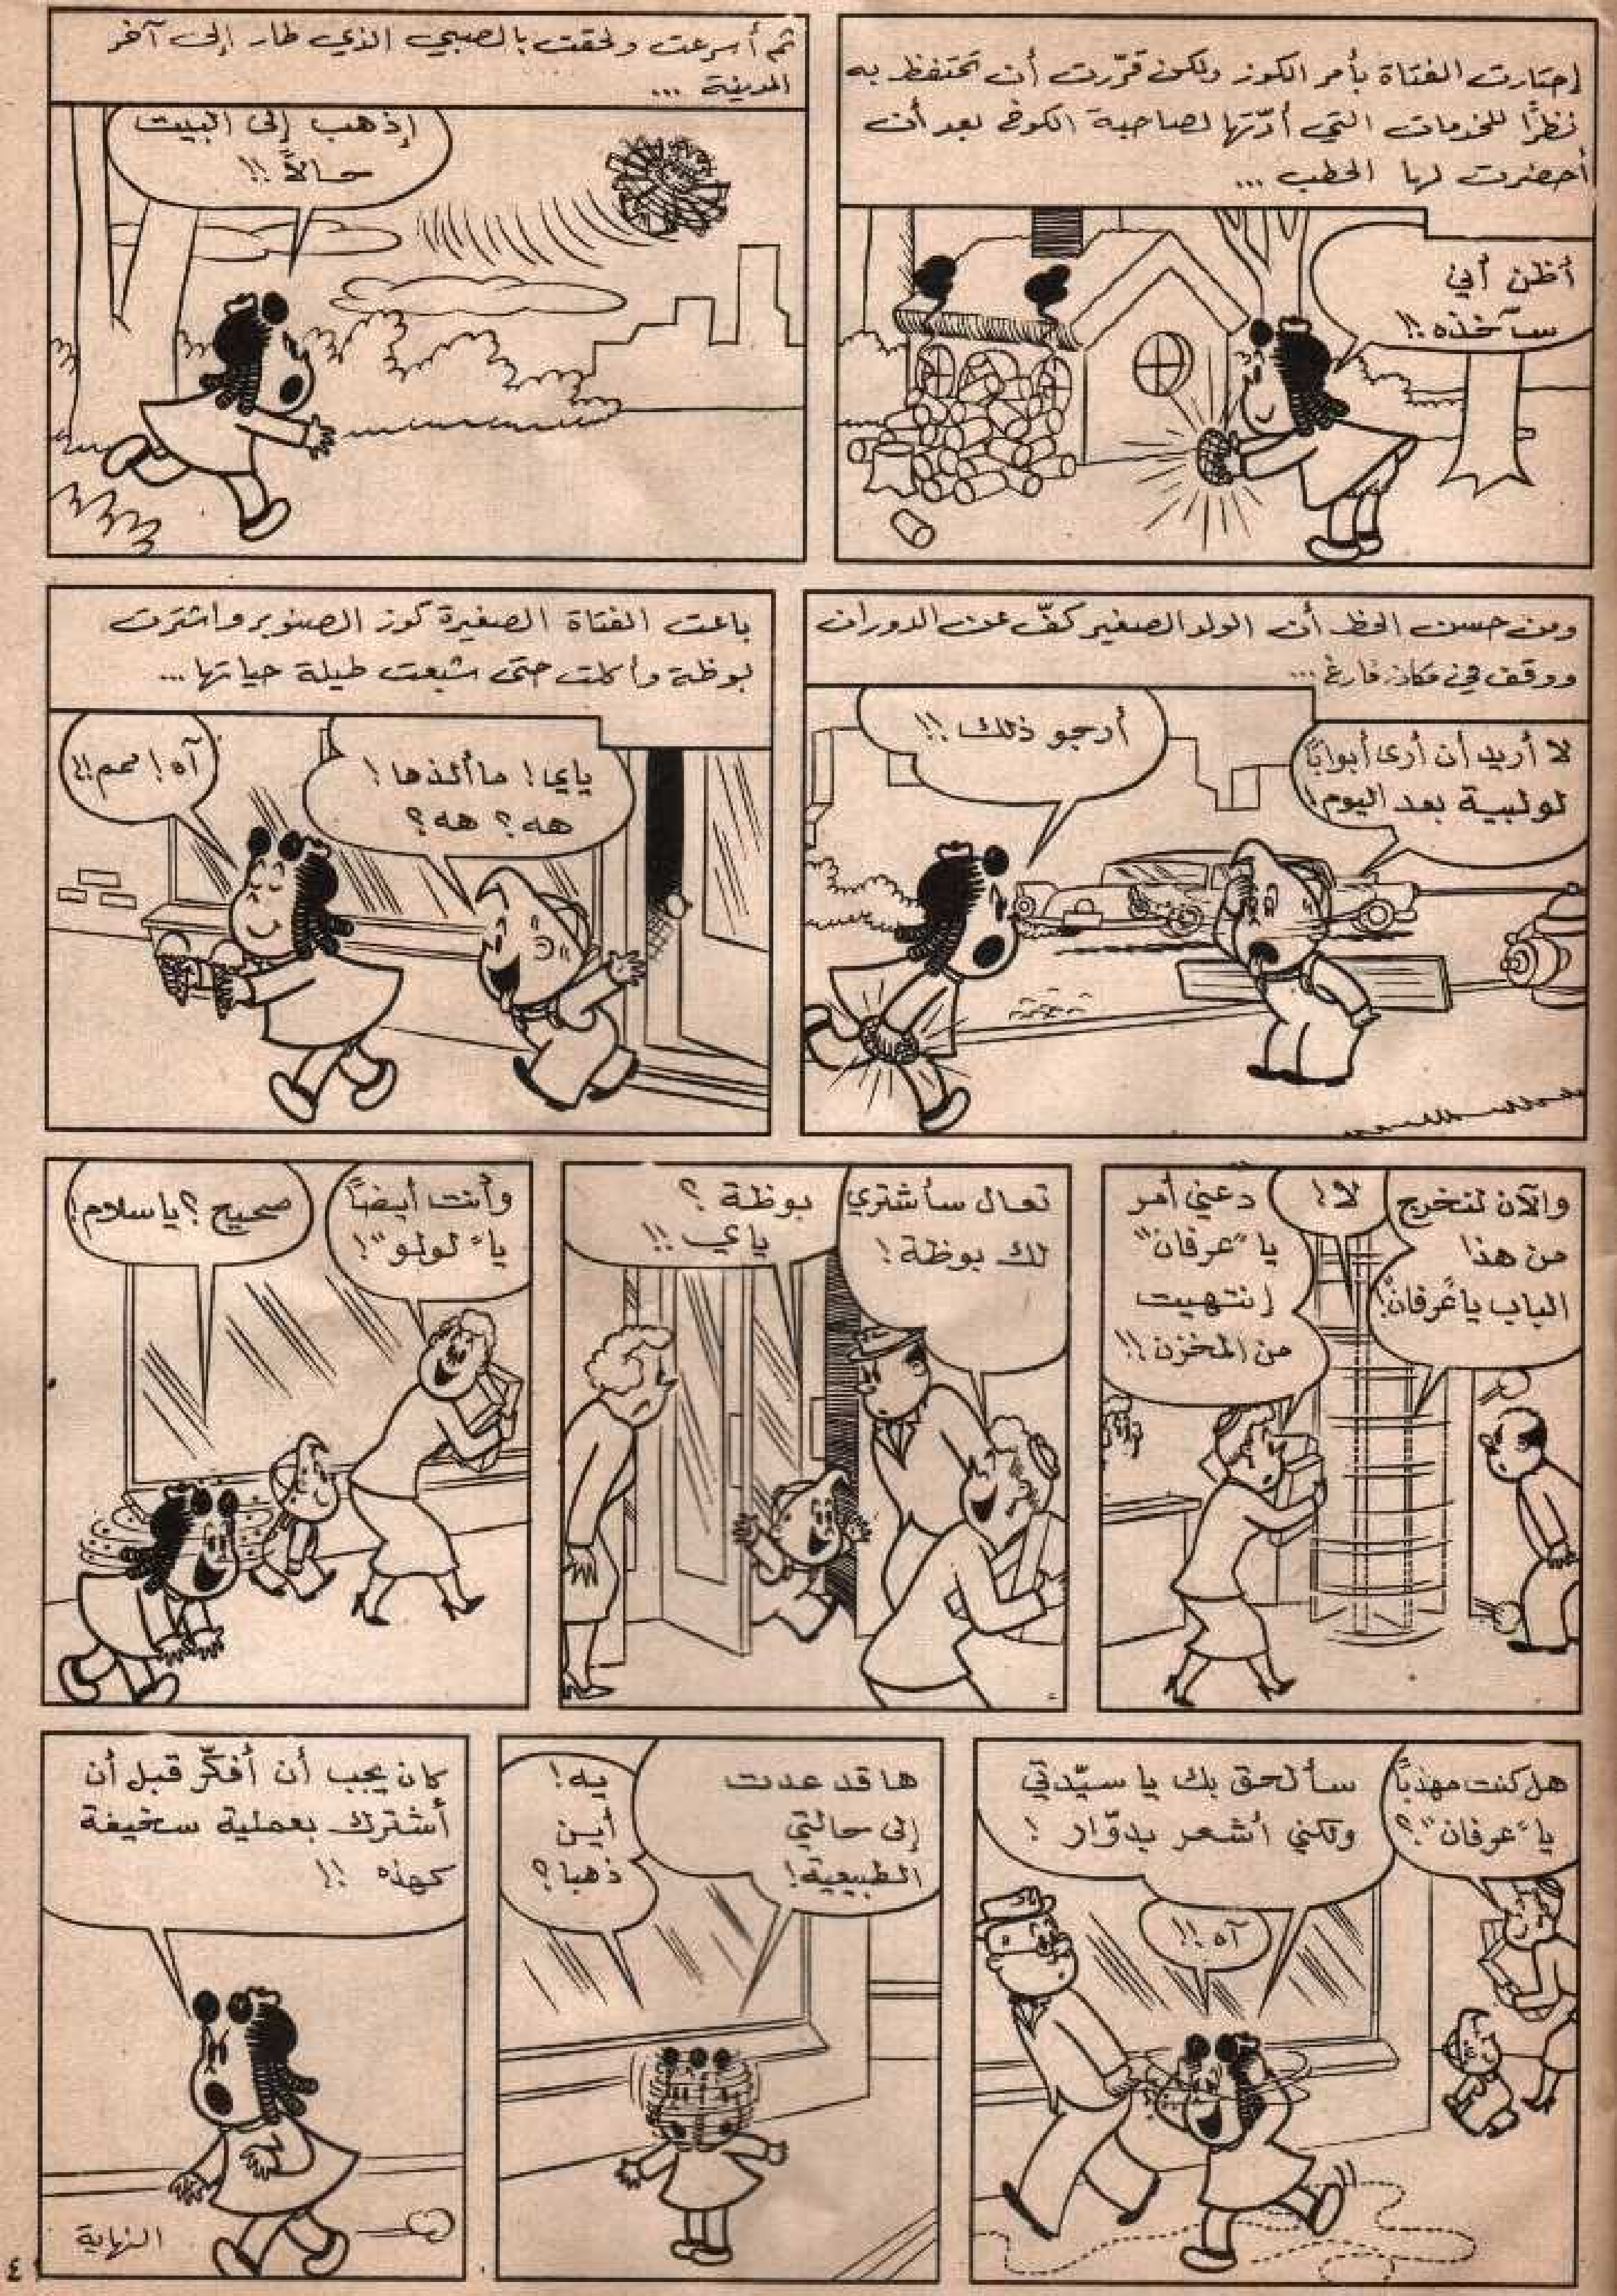 إحتارت الفتاة بأمر الكوز ولكن قرّرت أن تحتفظ به
نظرًا للخدمات التي أدّتها لصاحبة الكوخ بعد أن
أحضرت لها الحطب ...
أظن أني
سآخذه !!
ثم أسرعت ولحقت بالصبي الذي طار إلى آخر
المدينة ...
إذهب إلى البيت
حالاً !!
ومن حسن الحظ أن الولد الصغير كفّ عن الدوران
ووقف في مكان فارغ ...
لا أريد أن أرى أبوابًا
لولبية بعد اليوم !
أرجو ذلك !!
باعت الفتاة الصغيرة كوز الصنوبر واشترت
بوظة وأكلت حتى شبعت طيلة حياتها ...
ياي ! ما ألذها !
هه ؟ هه ؟
آه ! همم !!
والآن لنخرج
من هذا
الباب يا "عرفان" !
لا !
دعني أمر
يا "عرفان"
إنتهيت
من المخزن !!
تعال سأشتري
لك بوظة !
بوظة ؟
ياي !!
وأنت أيضًا
يا "لولو" !
صحيح ؟ يا سلام !
هل كنت مهذبًا
يا "عرفان" ؟
سألحق بك يا سيّدتي
ولكني أشعر بدوّار !
آه !!
ها قد عدت
إلى حالتي
الطبيعية !
يه !
أين
ذهبا ؟
كان يجب أن أفكّر قبل أن
أشترك بعملية سخيفة
كهذه !!
النهاية
٤